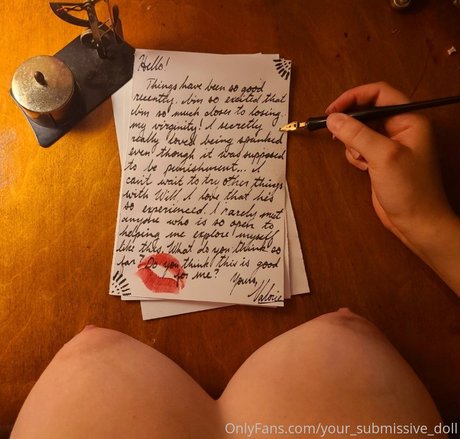 Hello!
Things have been so good
recently. I'm so excited that
I'm so much closer to losing
my virginity. I secretly
really loved being spanked
even though it was supposed
to be punishment... I
can't wait to try other things
with Will. I love that he's
so experienced. I rarely met
anyone who is so open to
helping me explore myself
like this. What do you think so
far? Do you think this is good
for me?
Yours,
Valorie
OnlyFans.com/your_submissive_doll